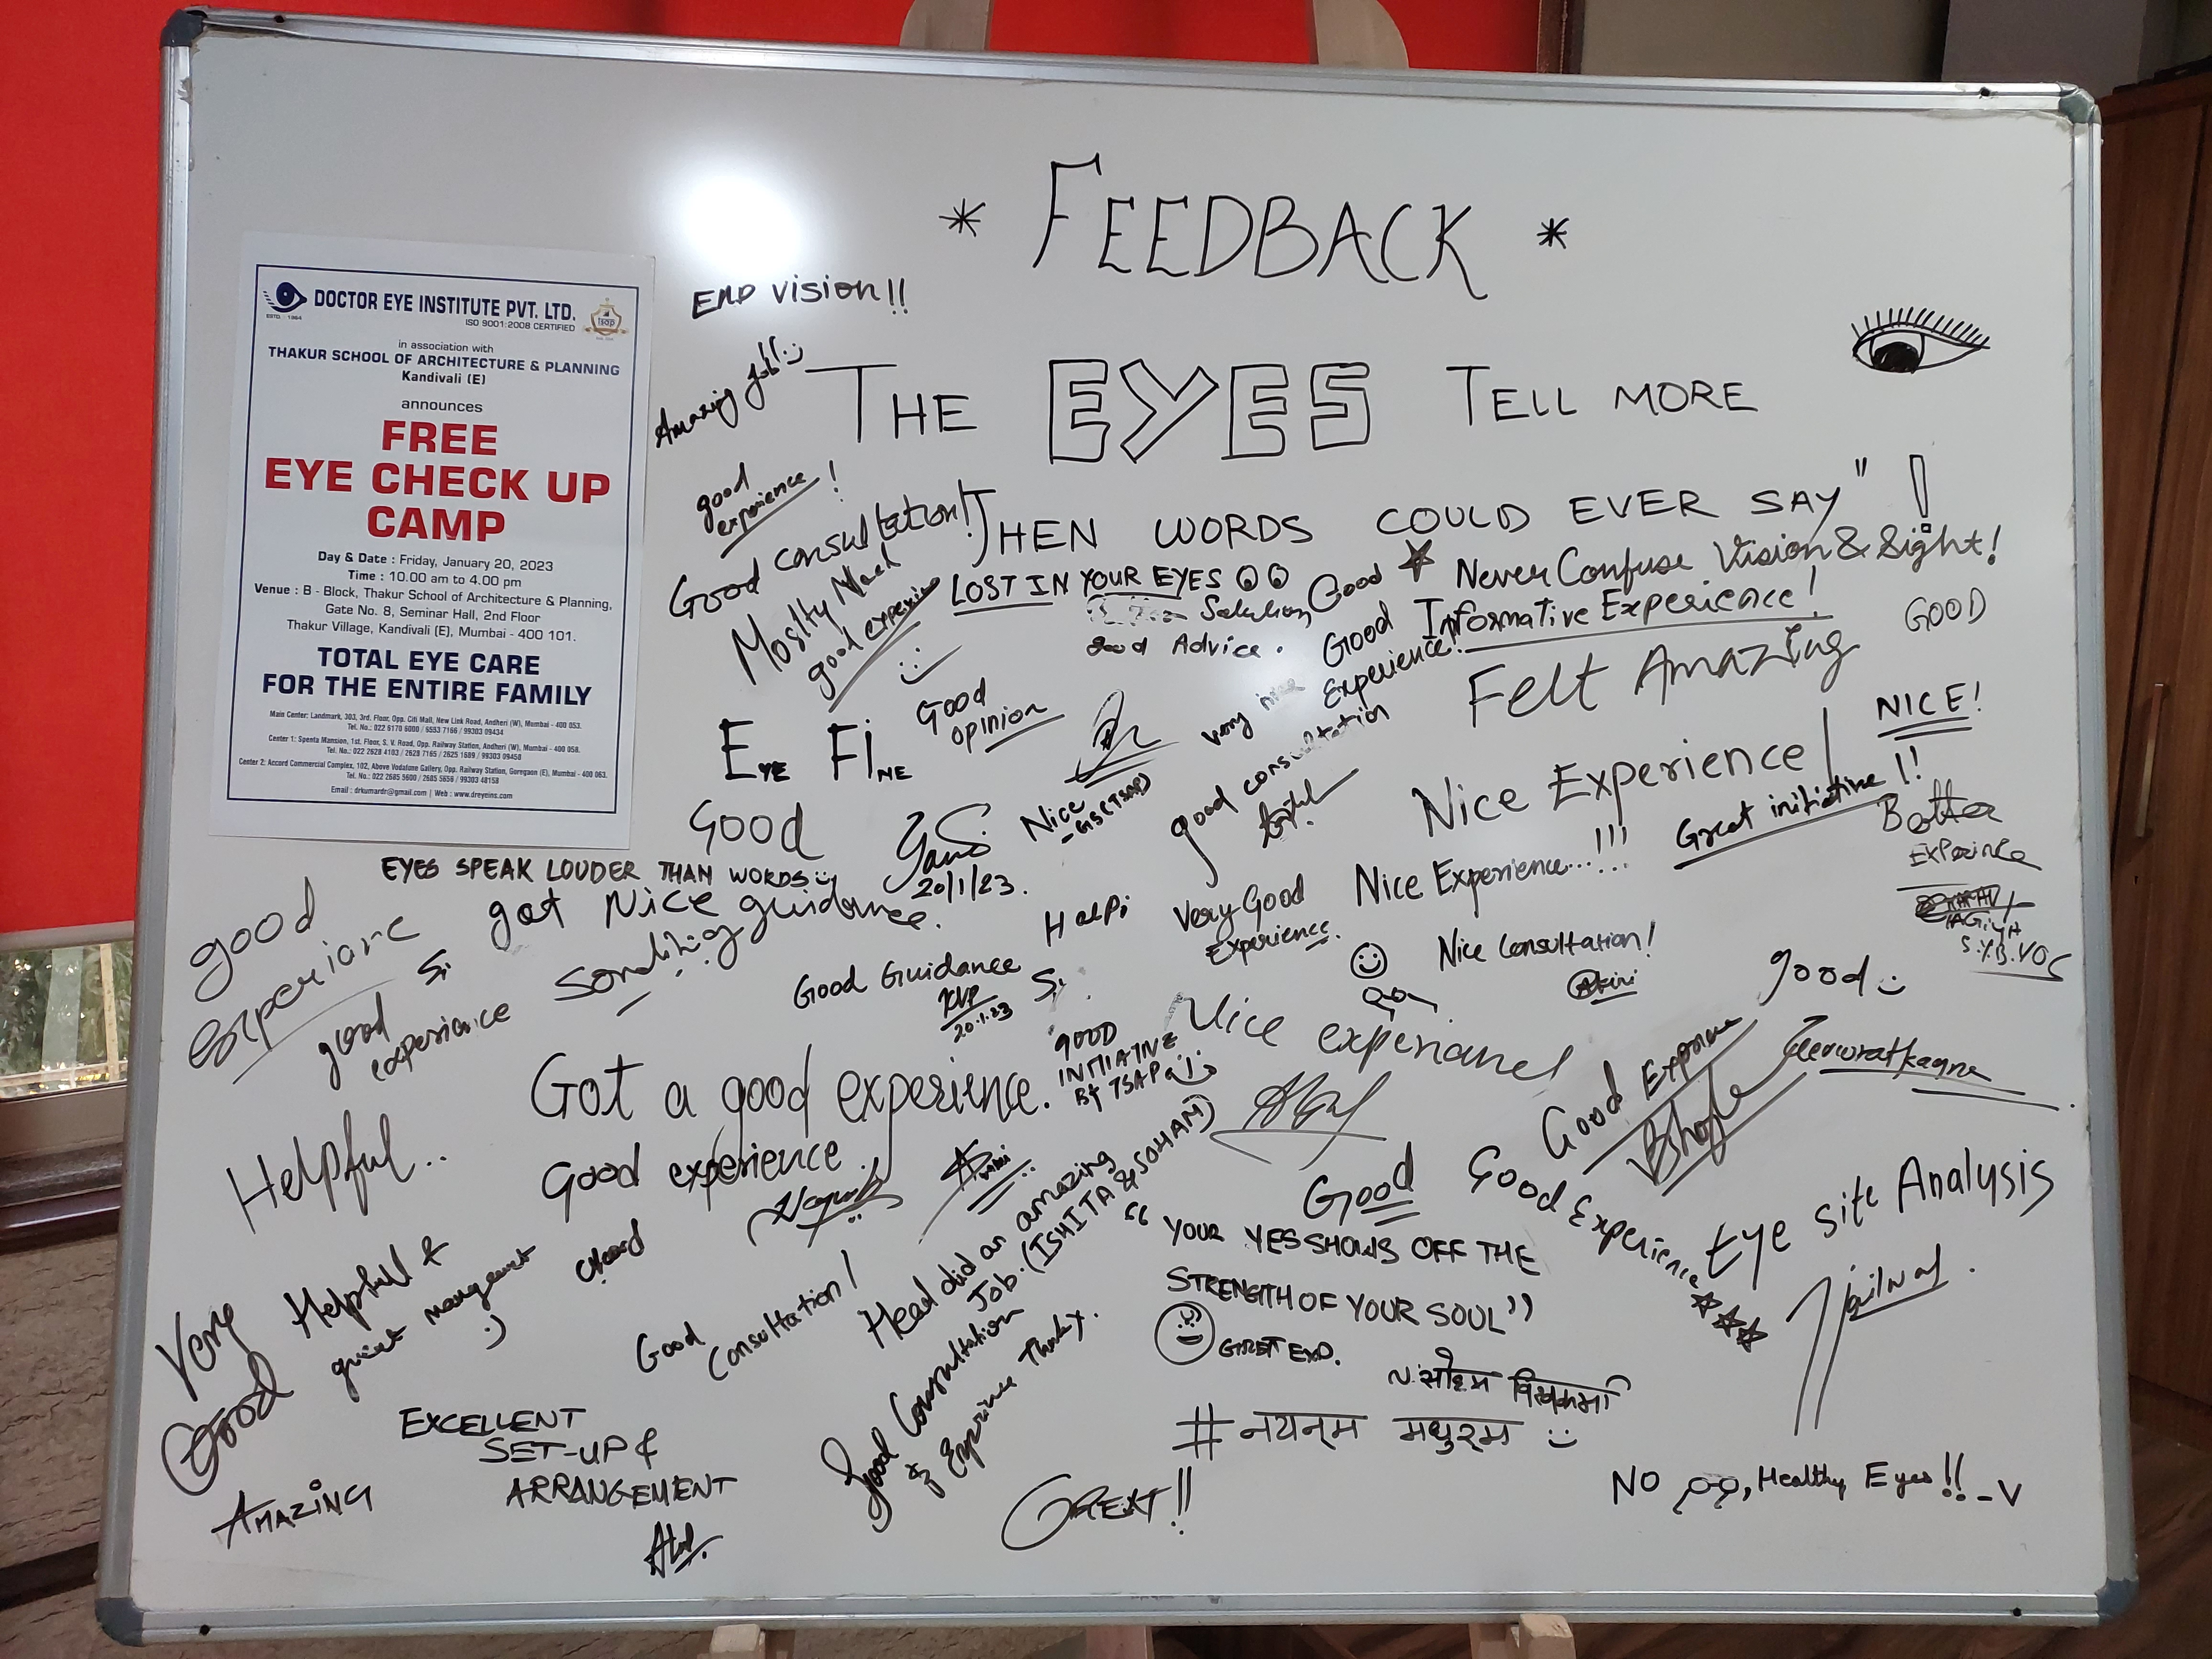 * FEEDBACK *
DOCTOR EYE INSTITUTE PVT. LTD.
ESTD. - 1984
ISO 9001:2008 CERTIFIED
tsap
in association with
THAKUR SCHOOL OF ARCHITECTURE & PLANNING
Kandivali (E)
announces
FREE
EYE CHECK UP
CAMP
Day & Date : Friday, January 20, 2023
Time : 10.00 am to 4.00 pm
Venue : B - Block, Thakur School of Architecture & Planning,
Gate No. 8, Seminar Hall, 2nd Floor
Thakur Village, Kandivali (E), Mumbai - 400 101.
TOTAL EYE CARE
FOR THE ENTIRE FAMILY
Main Center: Landmark, 303, 3rd. Floor, Opp. Citi Mall, New Link Road, Andheri (W), Mumbai - 400 053.
Tel. No.: 022 6170 6000 / 6553 7166 / 99303 09434
Center 1: Spenta Mansion, 1st. Floor, S. V. Road, Opp. Railway Station, Andheri (W), Mumbai - 400 058.
Tel. No.: 022 2628 4103 / 2628 7165 / 2625 1689 / 99303 09458
Center 2: Accord Commercial Complex, 102, Above Vodafone Gallery, Opp. Railway Station, Goregaon (E), Mumbai - 400 063.
Tel. No.: 022 2685 5600 / 2685 5656 / 99303 48158
Email : drkumardr@gmail.com | Web : www.dreyeins.com
END Vision!!
Amazing Job!
THE EYES TELL MORE
THEN WORDS COULD EVER SAY" !
good
experience!
Good consultation!
Moslty Mack
good experience
LOST IN YOUR EYES
Solution
Good Advice.
Good
Never Confuse Vision & Sight!
Good
Experience!
Informative Experience!
GOOD
Felt Amazing
NICE!
EYE FINE
Good
opinion
very nice
good consultation
Nice
Nice Experience!
Great initiative!!
Better
Experince
S.Y.B.VOC
Good
20/1/23.
EYES SPEAK LOUDER THAN WORDS
got Nice guidance.
good
experiance
good
experience
Something
Good Guidance
KVP
20.1.23
HalPi
Very Good
Experience.
Nice Experience...!!!
Nice Consultation!
good
Nice experiance!
GOOD
INITIATIVE
By TSAP
Got a good experience.
Good experience.
Helpful..
Good Experience
Good
Good Experience
Eye site Analysis
Head did an amazing
Job. (ISHITA & SOHAM)
"YOUR YES SHOWS OFF THE
STRENGTH OF YOUR SOUL"
GRET EXP.
Very
Good
Helpfull &
quiet mangement
:)
Good
Consultation!
Good Consultation
& Exprince Thanky.
EXCELLENT
SET-UP &
ARRANGEMENT
AMAZING
GREAT!!
# नयनम मधुरम
NO , Healthy Eyes!! -V